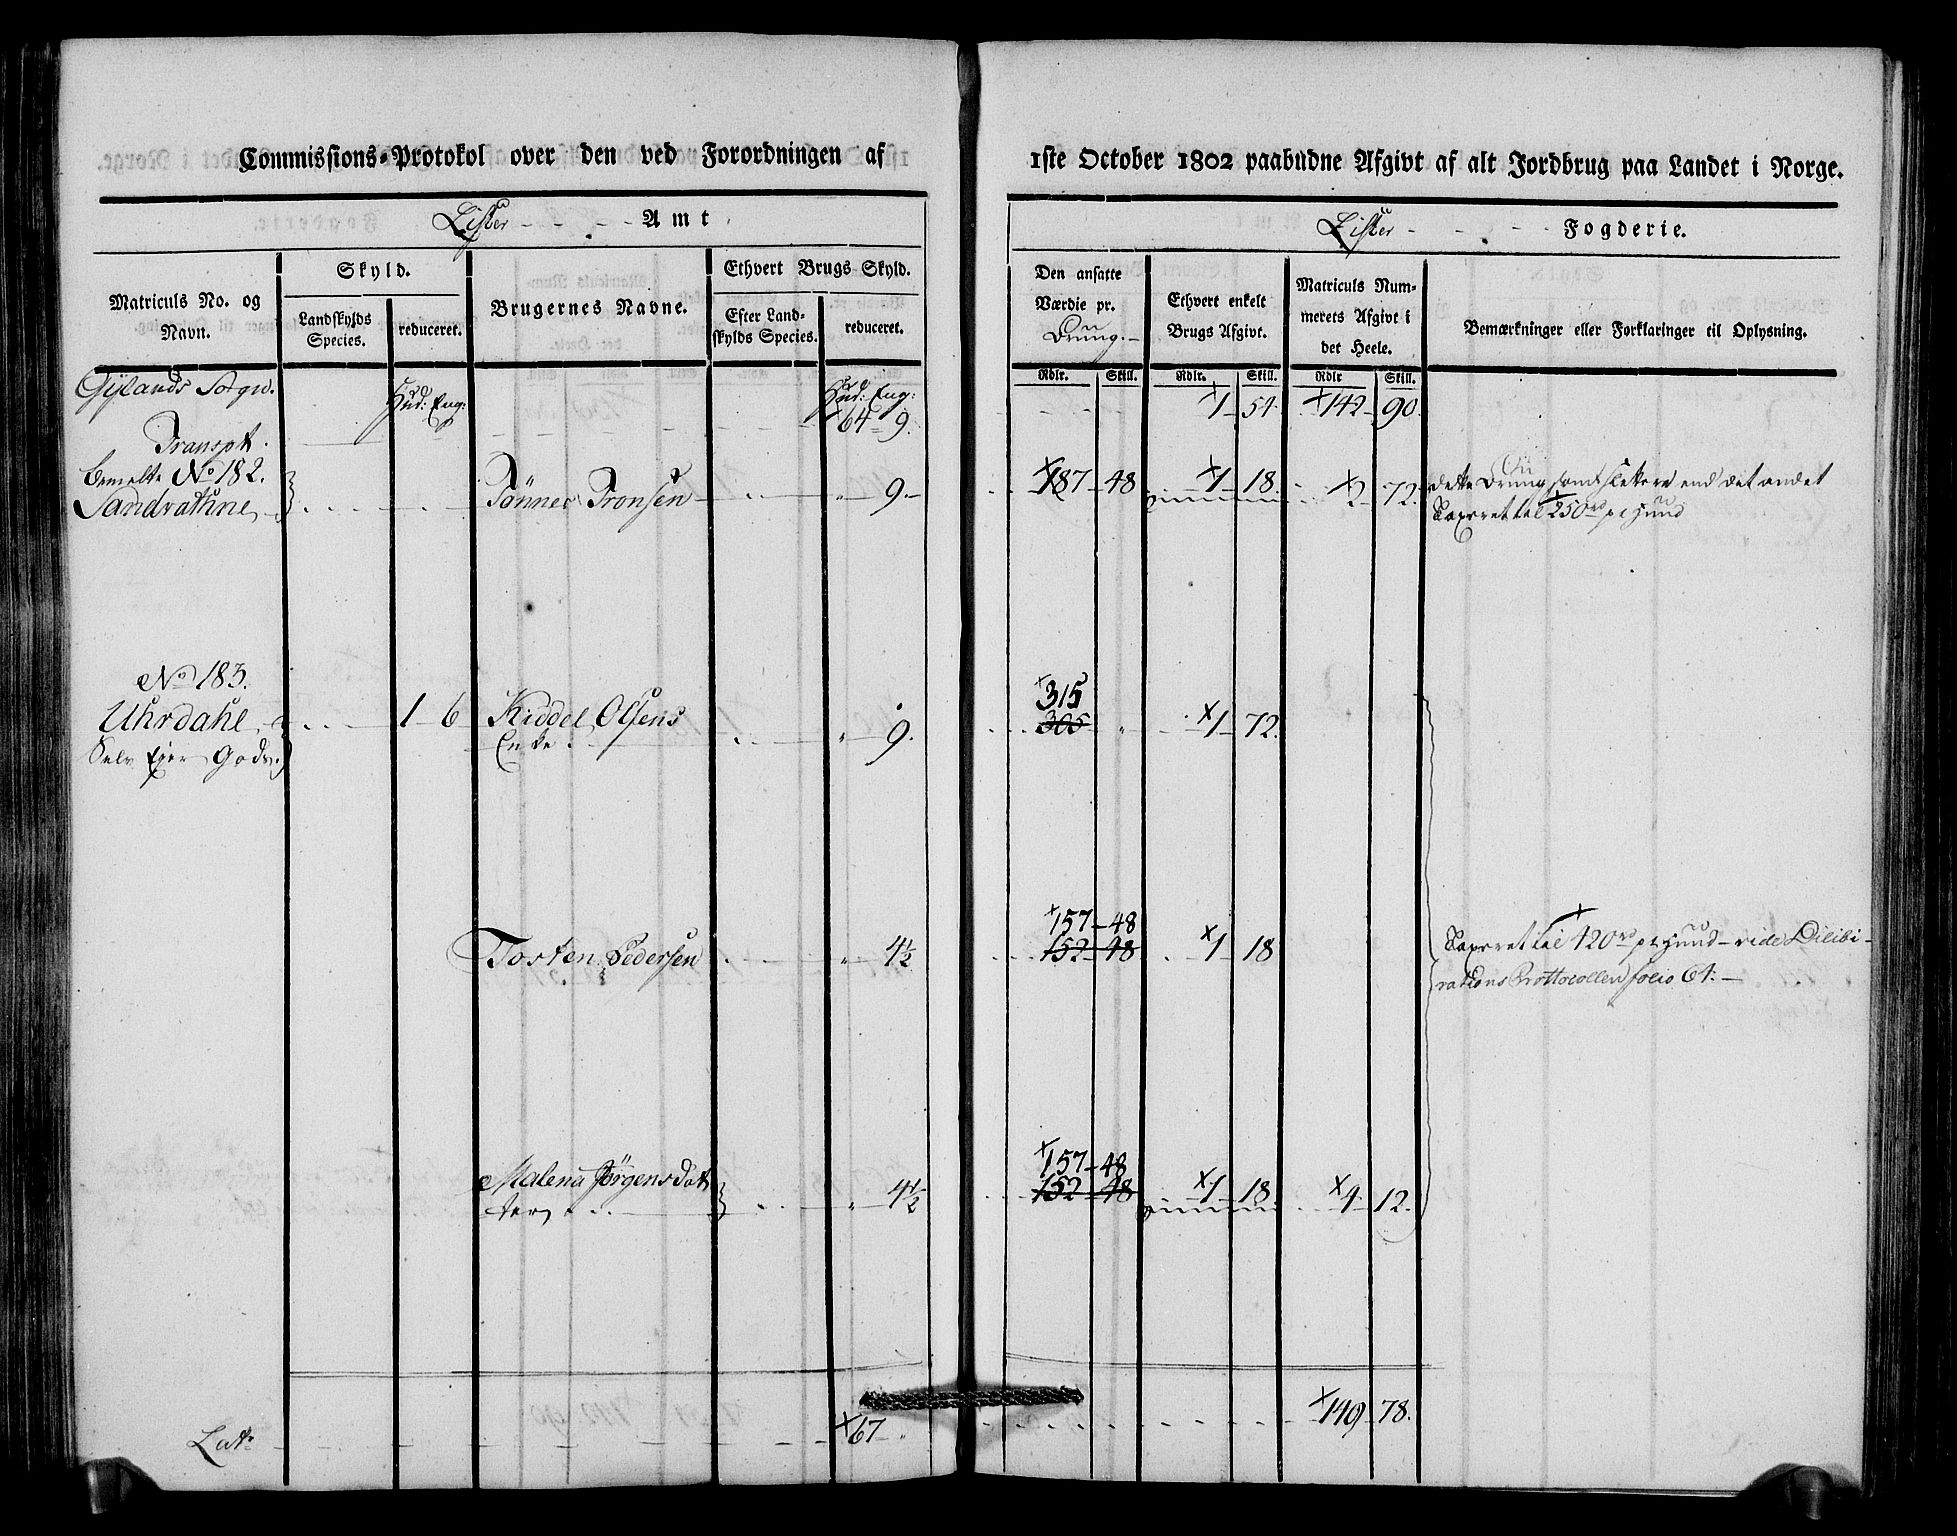 Commissions-Protokol over den ved Forordningen af
1ste October 1802 paabudne Afgivt af alt Jordbrug paa Landet i Norge.
Lister Amt
Lister Fogderie.
Matriculs No. og Navn.
Skyld.
Landskylds Species.
reduceret.
Brugernes Navne.
Ethvert Brugs Skyld.
Efter Landskylds Species.
reduceret.
Den ansatte Værdie pr. Brug.
Ethvert enkelt Brugs Afgivt.
Matriculs Nummerets Afgivt i det Heele.
Bemærkninger eller Forklaringer til Oplysning.
Rdlr. Skill. Rdlr. Skill. Rdlr Skill.
Gylands Sogn. Hud: Eng: Hud: Eng:
Transpt. 64 9. 1 54 142 90
bemelte No 182.
Sandvathne Tønnes Tronsen 9 187 48 1 18 2 72
dette Brug som slettere end det andet
Taxeret til 250 rd pr hund
No 183.
Uhrdahl 1 6 Kiddel Olsens 315
Selv Ejer Gods. Enke 9. 305 1 72
157 48
Tosten Pedersen 4½ 152 48 1 18
Taxeret til 420 rd pr hund vide Delibi-
rations Prottocollen folio 64:
157 48
Malena Jørgensdat 4½ 152 48 1 18 4 12
ter
Lat. 67 149 78.